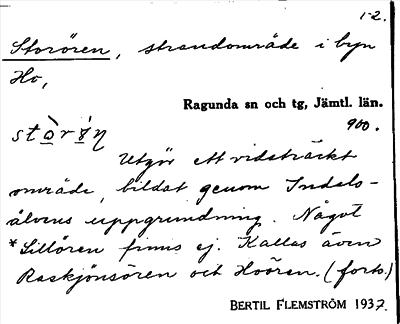 1-2.
Storören, strandområde i byn
Ho,
Ragunda sn och tg, Jämtl. län.
900.
stòrö́n
Utgör ett vidsträckt
område, bildat genom Indals-
älvens uppgrundning. Något
*Lillören finns ej. Kallas även
Raskjönsören och Hoören. (forts.)
BERTIL FLEMSTRÖM 1937.